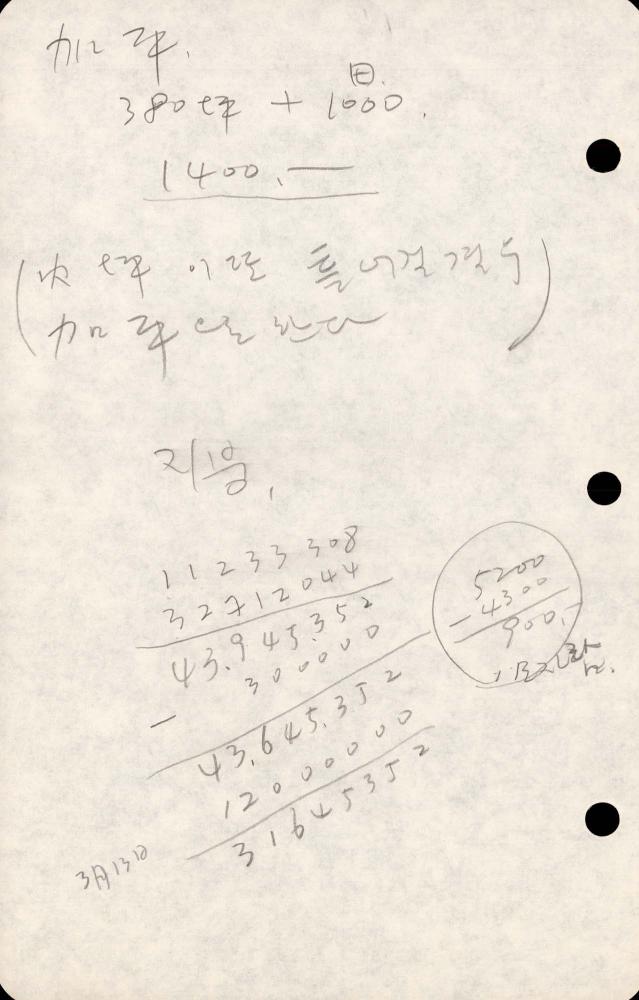 加平.
田.
380坪 + 1000.
1400.—
(次坪 이로 들어갈경우
加平으로 한다)
지웅,
11233308
32712044
43.945.352
300000
—
43.645.352
12000000
31645352
5200
— 4300
900.—
3月13日